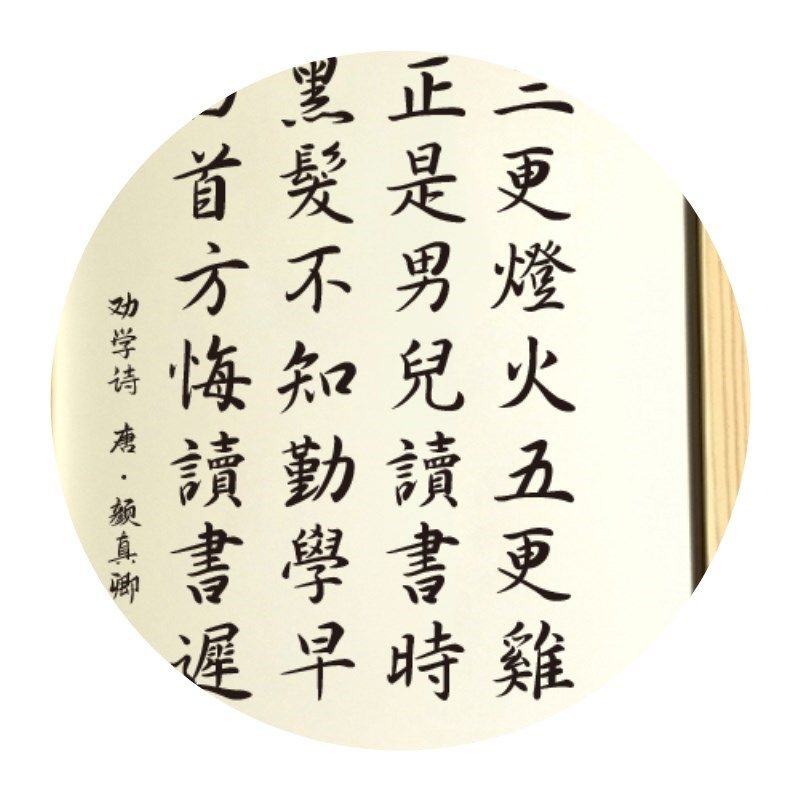 三更燈火五更雞
正是男兒讀書時
黑髮不知勤學早
白首方悔讀書遲
劝学诗 唐·颜真卿